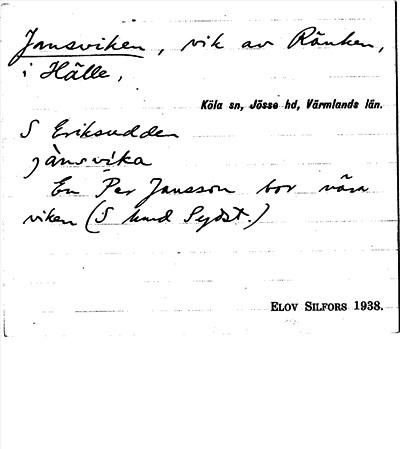 Jansviken, vik av Ränken,
i Hälle,
Köla sn, Jösse hd, Värmlands län.
S Eriksudden
jànsvika
En Per Jansson bor nära
viken (S Sydst.)
ELOV SILFORS 1938.